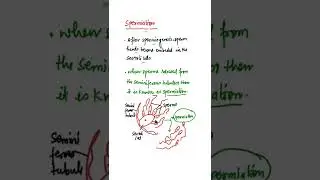 Spermiation
• After spermiogenesis sperm
heads become embedded in the
sertoli cells
• when sperms released from
the seminiferous tubules then
it is known as spermiation.
Semini
ferous
tubule
sperms
spermiation
sertoli
cell
• when s
the semi
it is kn
Semini
ferous
tubule
released from
tubules then
spermiation.
spermiation